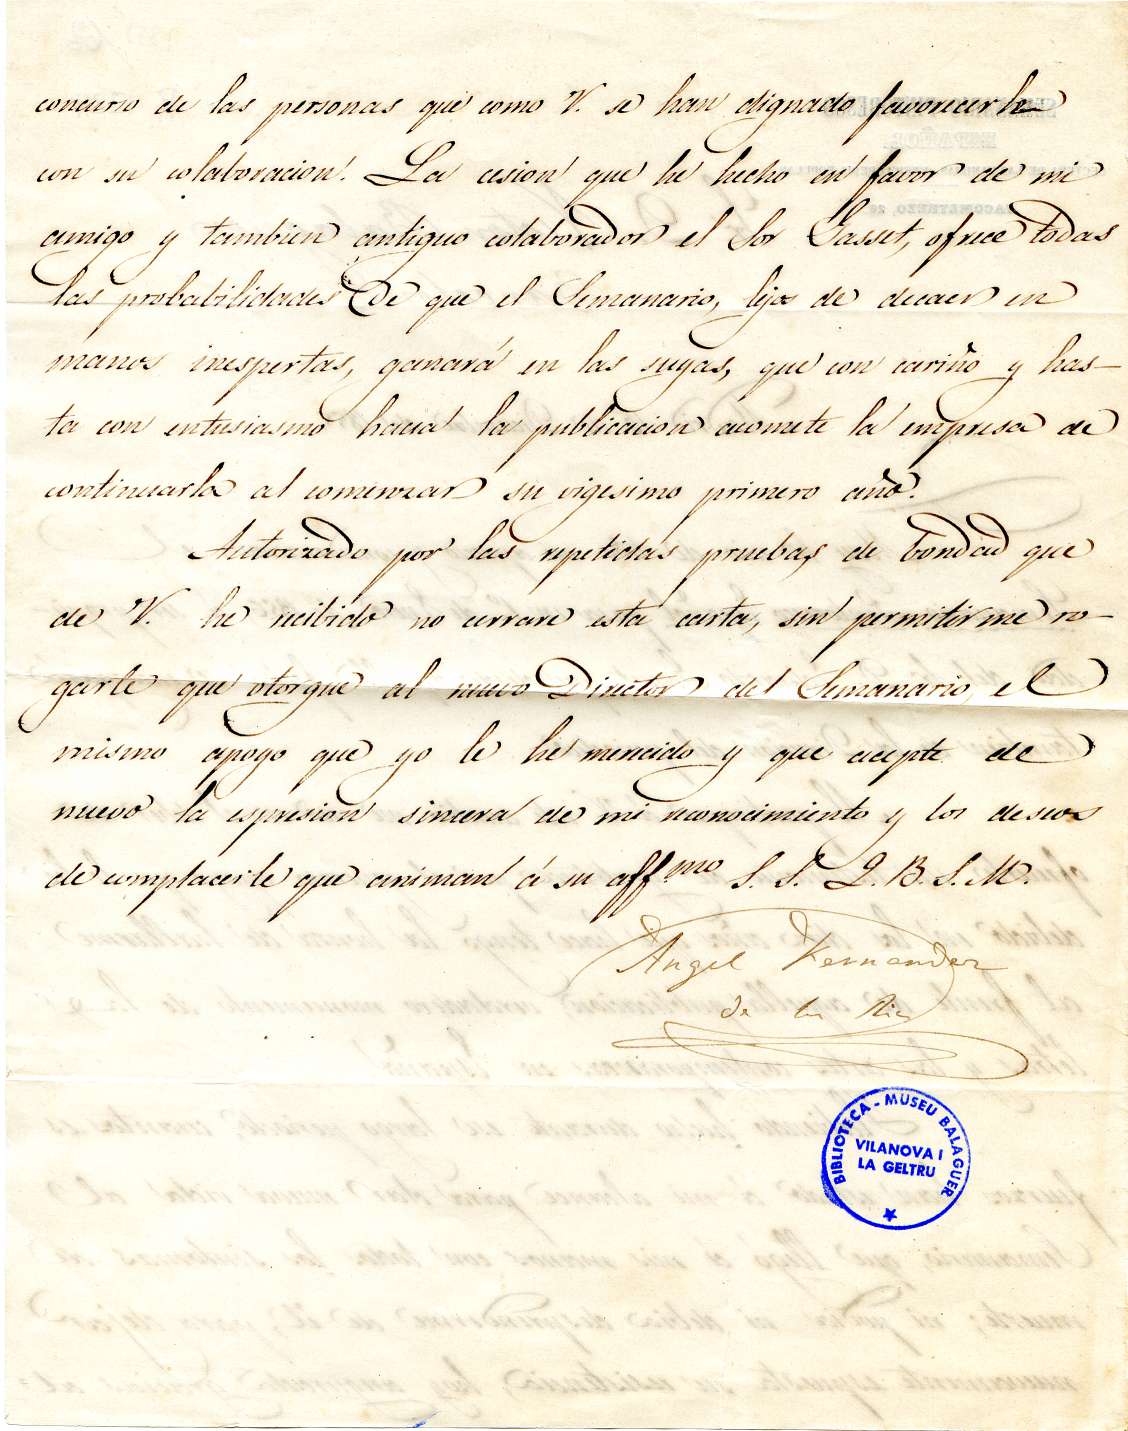 concurso de las personas que como V. se han dignado favorecerle
con su colaboracion. La cesion que he hecho en favor de mi
amigo y tambien antiguo colaborador el Sor Gasset, ofrece todas
las probabilidades de que el Semanario, lejos de decaer en
manos inespertas, ganará en las suyas, que con cariño y has-
ta con entusiasmo hacia la publicacion acomete la empresa de
continuarla al comenzar su vigesimo primero año.
Autorizado por las repetidas pruebas de bondad que
de V. he recibido no cerrare esta carta, sin permitirme ro-
garle que otorgue al nuevo Director del Semanario, el
mismo apoyo que yo le he merecido y que acepte de
nuevo la espresion sincera de mi reconocimiento y los deseos
de complacerle que animan á su aff.mo S. S. Q. B. S. M.
Angel Fernandez
de los Rios
BIBLIOTECA - MUSEU BALAGUER
VILANOVA I
LA GELTRU